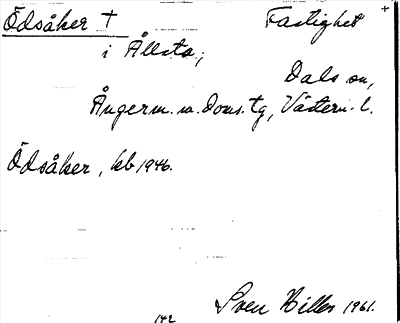 Ödsåker † Fastighet +
i Ållsta,
Dals sn,
Ångerm. m. Doms. tg, Västern. l.
Ödsåker, kb 1946.
Sven Hillbo 1961.
142